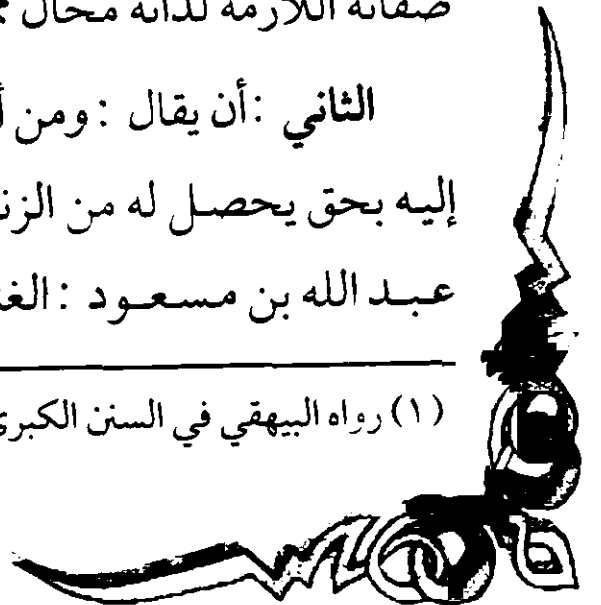 صفاته اللازمة لذاته محال
الثاني : أن يقال : ومن أ
إليه بحق يحصل له من الزنـ
عبد الله بن مسعود : الغنـ
(١) رواه البيهقي في السنن الكبرى